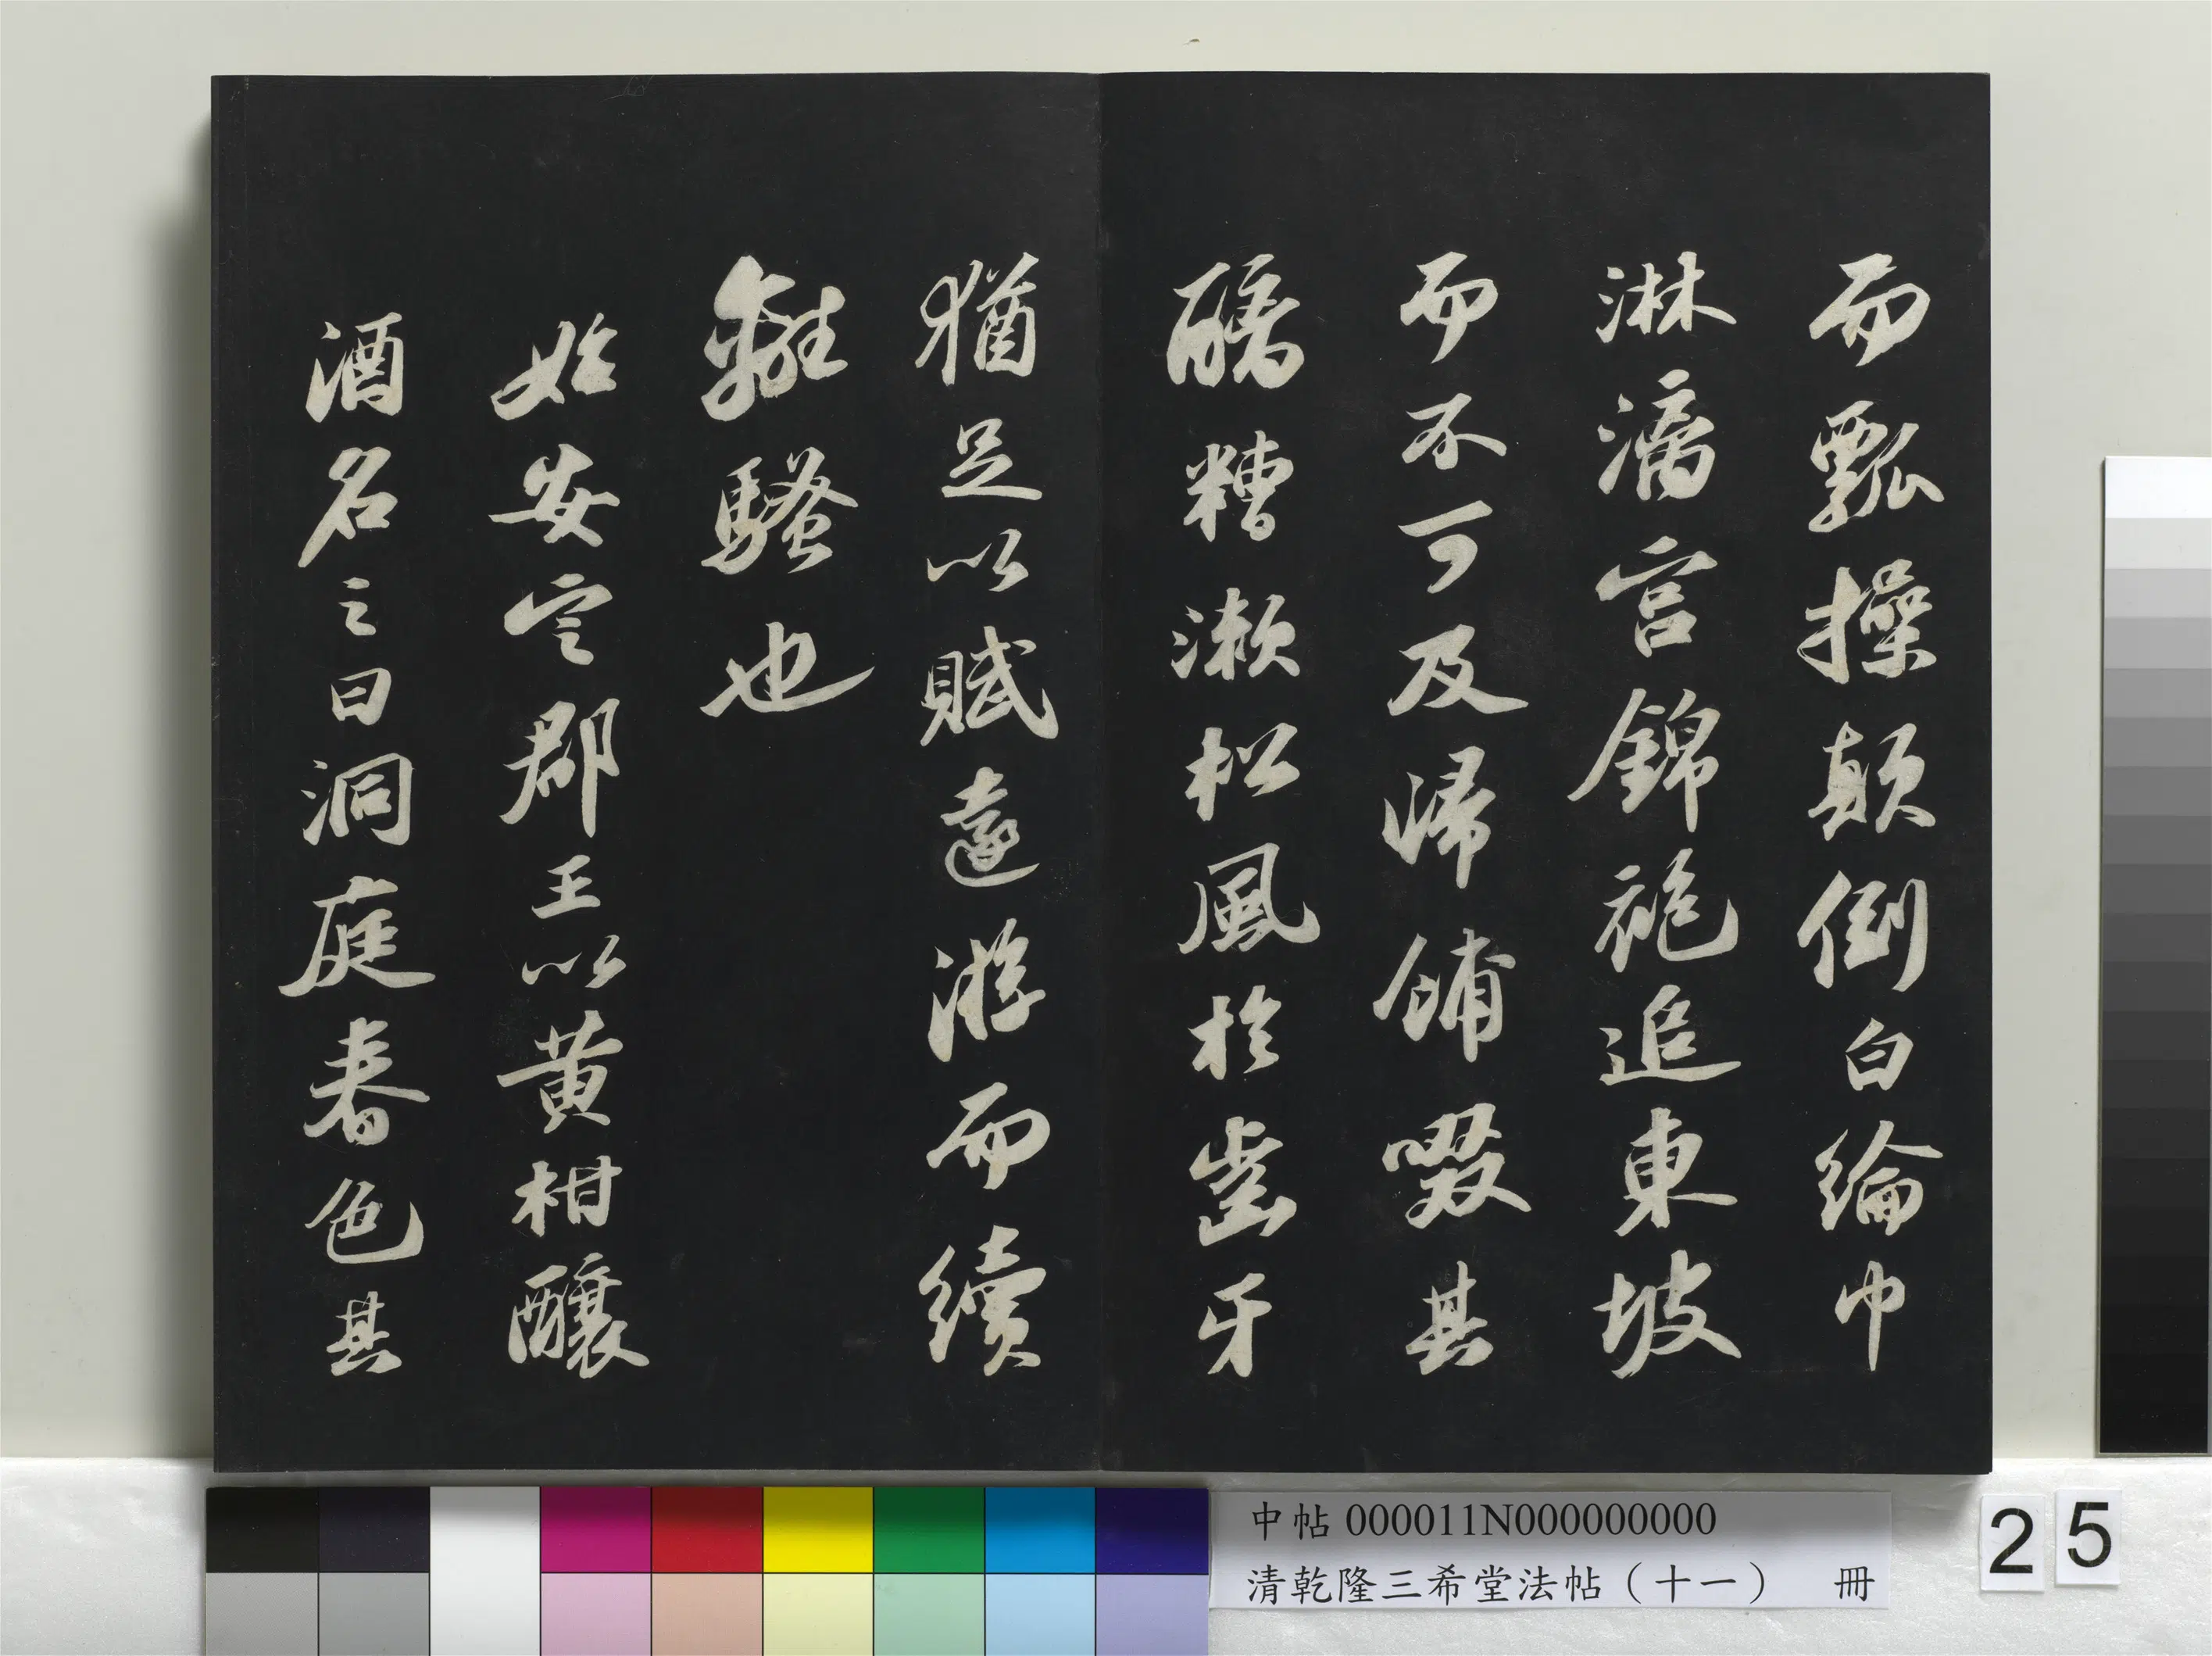 而瓢操顛倒白綸巾
淋漓宮錦袍追東坡
而不可及歸餔啜其
醨糟漱松風於齒牙
猶足以賦遠游而續
離騷也
始安定郡王以黃柑釀
酒名之曰洞庭春色其
中帖 000011N000000000
清乾隆三希堂法帖（十一） 冊
25